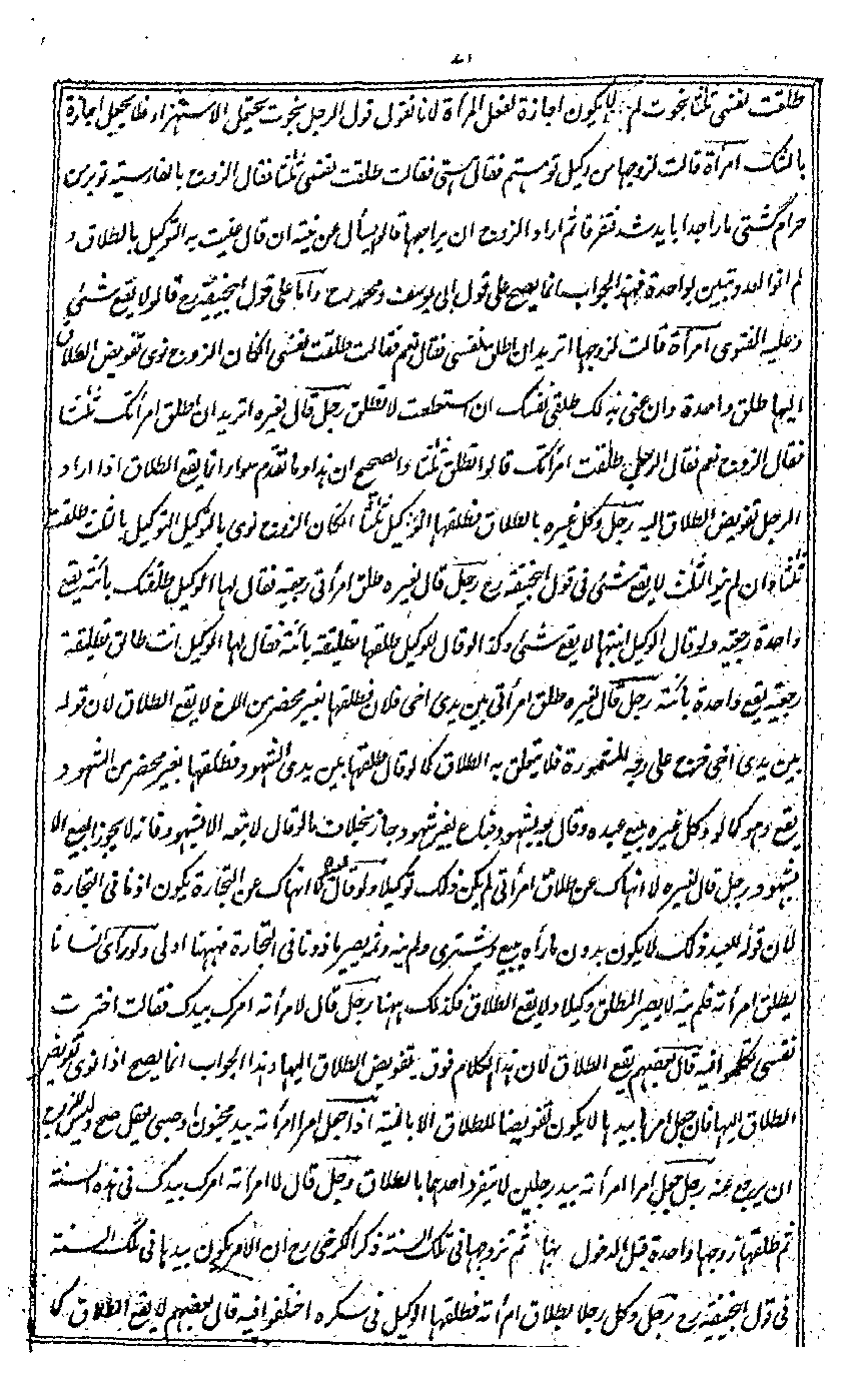 طلقت نفسى ثلثا بخوت لم لا يكون اجازة لفعل المرأة لانا نقول قول الرجل بخوت يحتمل الاستهزاء فلا يجعل اجازة
بالشك امرأة قالت لزوجها من وكيل تو هستم فقال هستى فقالت طلقت نفسى ثلثا فقال الزوج بالفارسية تو بر من
حرام گشتى مارا جدا بايد شد فتفرقا ثم اراد الزوج ان يراجعها قالوا يسأل عن نيته ان قال عنيت به التوكيل بالطلاق و
لم انو العدد تبين بواحدة فهذا الجواب انما يصح على قول ابى يوسف و محمد رح و اما على قول ابيحنيفة رح قالوا لا يقع شئ
و عليه الفتوى امرأة قالت لزوجها اتريد ان اطلق نفسى فقال نعم فقالت طلقت نفسى انكان الزوج نوى تفويض الطلاق
اليها طلق واحدة وان عنى بذلك طلقى نفسك ان استطعت لا تطلق رجل قال لغيره اتريد ان اطلق امرأتك ثلثا
فقال الزوج نعم فقال الرجل طلقت امرأتك قالوا تطلق ثلثا والصحيح ان هذا وما تقدم سواء انما يقع الطلاق اذا اراد
الرجل تفويض الطلاق اليه رجل وكل غيره بالطلاق فطلقها الوكيل ثلثا انكان الزوج نوى بالتوكيل التوكيل بالثلث طلقت
ثلثا وان لم ينو الثلث لا يقع شئ فى قول ابيحنيفة رح رجل قال لغيره طلق امرأتى رجعية فقال لها الوكيل طلقتك بائنة يقع
واحدة رجعية ولو قال الوكيل ابنتها لا يقع شئ وكذا لو قال للوكيل طلقها تطليقة بائنة فقال لها الوكيل انت طالق تطليقة
رجعية يقع واحدة بائنة رجل قال لغيره طلق امرأتى بين يدى اخى فلان فطلقها بغير محضر من الاخ لا يقع الطلاق لان قوله
بين يدى اخى خرج على وجه المشورة فلا يتعلق به الطلاق كما لو قال طلقها بين يدى الشهود فطلقها بغير محضر من الشهود
يقع وهو كما لو وكل غيره ببيع عبده وقال بع بشهود فباع بغير شهود جاز بخلاف ما لو قال لا تبعه الا بشهود فانه لا يجوز البيع الا
بشهود رجل قال لغيره لا انهاك عن طلاق امرأتى لم يكن ذلك توكيلا ولو قال لعبده لا انهاك عن التجارة يكون اذنا فى التجارة
لان قوله للعبد ذلك لا يكون بدون ما رأه يبيع ويشترى ولم ينه وثم يصير ماذونا فى التجارة فههنا اولى ولو رأى انسانا
يطلق امرأته فلم ينه لا يصير المطلق وكيلا ولا يقع الطلاق فكذلك ههنا رجل قال لامرأته امرك بيدك فقالت اخترت
نفسى تكلموا فيه قال بعضهم يقع الطلاق لان هذا الكلام فوق تفويض الطلاق اليها وهذا الجواب انما يصح اذا نوى تفويض
الطلاق اليها فان جعل امرها بيدها لا يكون تفويضا للطلاق الا بالنية اذا جعل امر امرأته بيد مجنون او صبى يعقل صح وليس للزوج
ان يرجع عنه رجل جعل امر امرأته بيد رجلين لا ينفرد احدهما بالطلاق رجل قال لامرأته امرك بيدك فى هذه السنة
ثم طلقها زوجها واحدة قبل الدخول بها ثم تزوجها فى تلك السنة ذكر الكرخى رح ان الامر يكون بيدها فى تلك السنة
فى قول ابيحنيفة رح رجل وكل رجلا بطلاق امرأته فطلقها الوكيل فى سكره اختلفوا فيه قال بعضهم لا يقع الطلاق كما